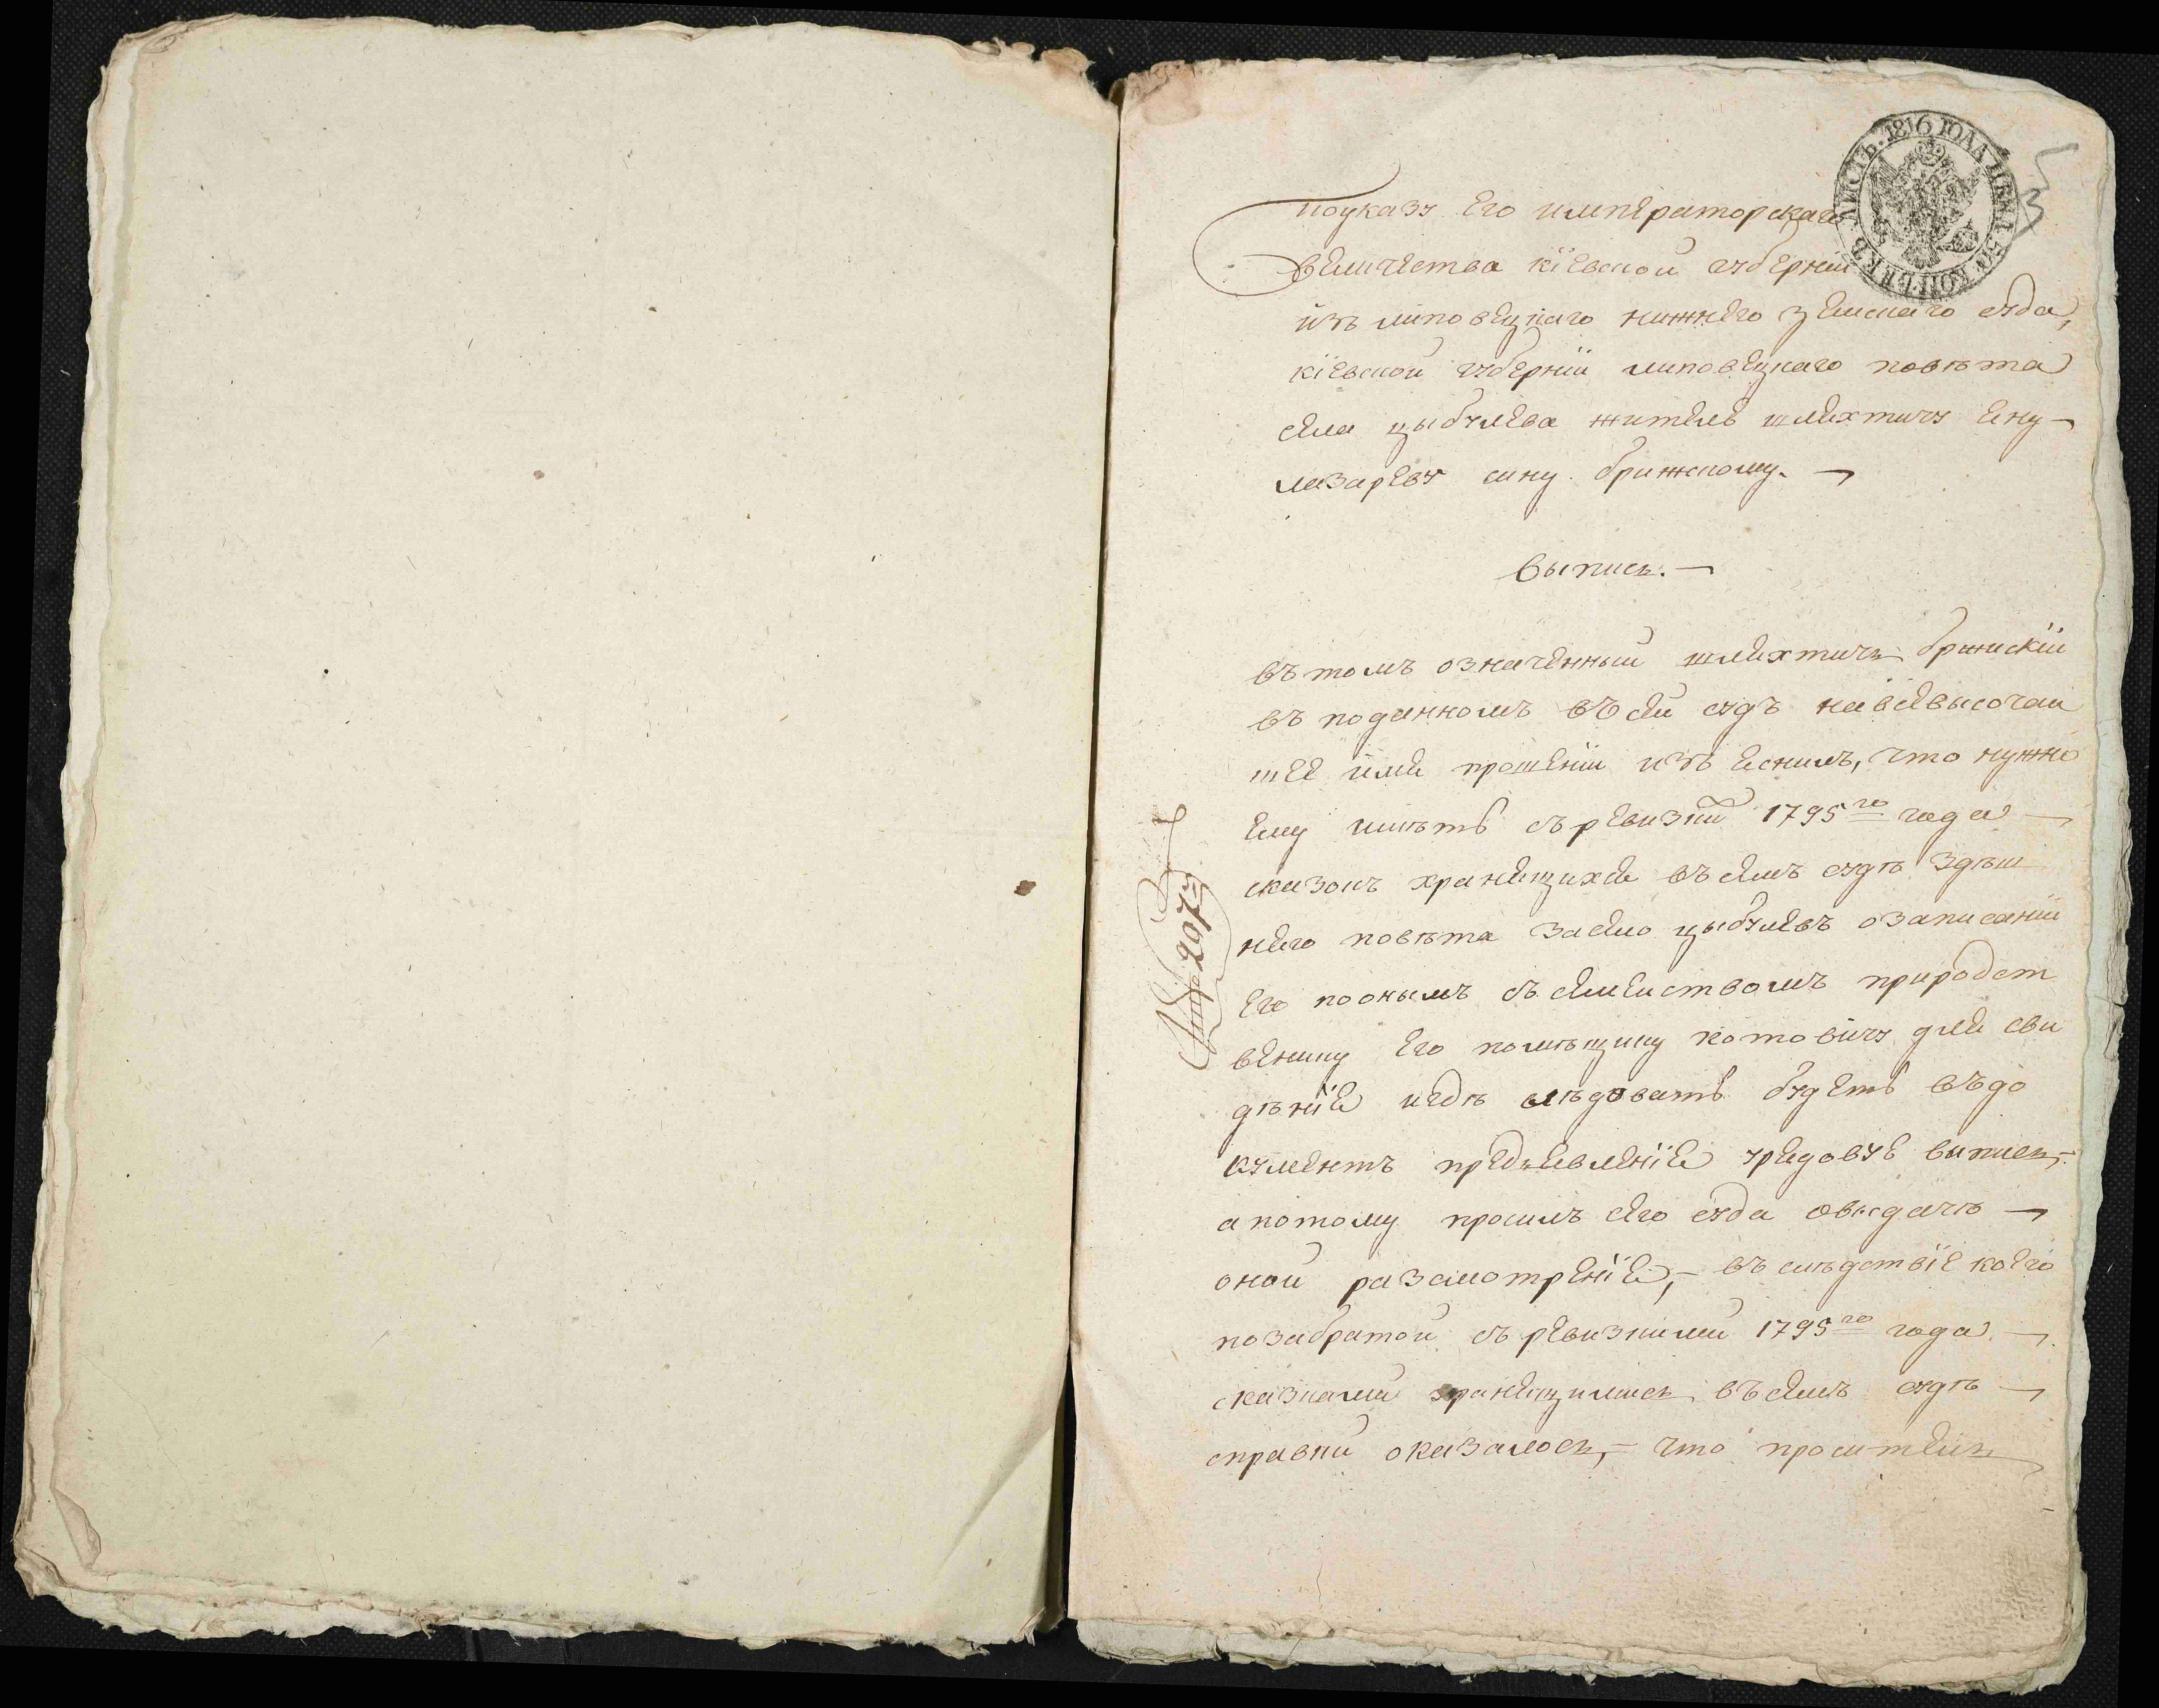 ЛИСТЪ. 1816 ГОДА ЦѢНА 50 КОПѢЕКЪ
5
3
поуказу Его императорскаго
величества кїевской губернїи
изъ липовецкаго нижнего земскаго суда,
кїевской губернїи липовецкаго повѣта
села цыбулева жителю шляхтичу яну
лазареву сину бржескому.
Выпись.
въ томъ означенный шляхтичъ бржескїи
въ поданномъ въ сеи судъ навсевысочаи
шее имя прошенїи изъ яснилъ, что нужно
ему имѣть съ ревизкий 1795го года
сказокъ хранящихся въ семъ судѣ здѣш
него повѣта засело цыбулевъ о записанїи
его по онымъ съ семеиствомъ природст
венику его помѣщику котовичу для сви
дѣнїя и гдѣ слѣдовать будетъ въ до
кументъ предъявленїя урядовую выпись,
а потому просилъ сего суда о выдачѣ
оной разсмотренїя, въ слѣдствїе коего
по забратой съ ревизкими 1795го года
сказками хранящимись въ семъ судѣ
справки оказалось, что проситель